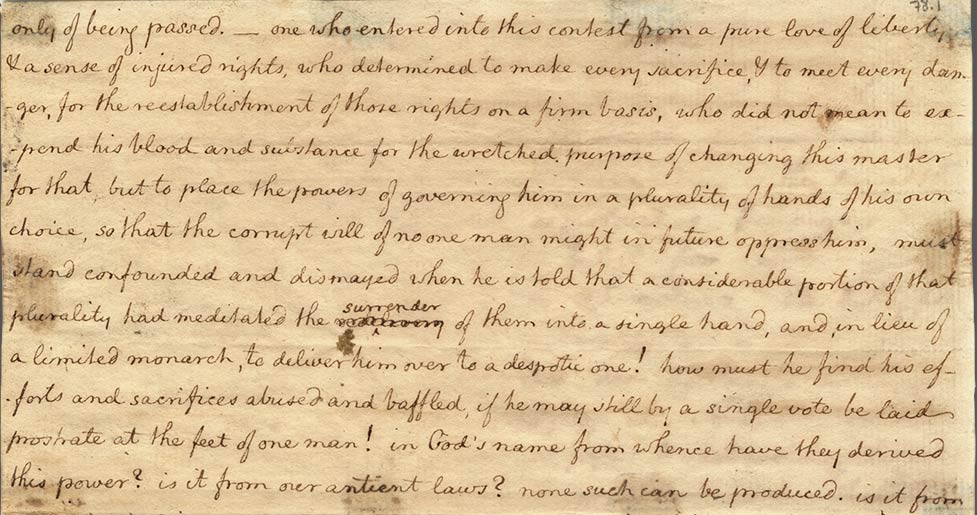 78.1
only of being passed. — one who entered into this contest from a pure love of liberty,
& a sense of injured rights, who determined to make every sacrifice, & to meet every dan-
-ger, for the reestablishment of those rights on a firm basis, who did not mean to ex-
-pend his blood and substance for the wretched purpose of changing this master
for that, but to place the powers of governing him in a plurality of hands of his own
choice, so that the corrupt will of no one man might in future oppress him, must
stand confounded and dismayed when he is told that a considerable portion of that
surrender
plurality had meditated the of them into a single hand, and, in lieu of
a limited monarch, to deliver him over to a despotic one! how must he find his ef-
-forts and sacrifices abused and baffled, if he may still by a single vote be laid
prostrate at the feet of one man! in God's name from whence have they derived
this power? is it from our antient laws? none such can be produced. is it from